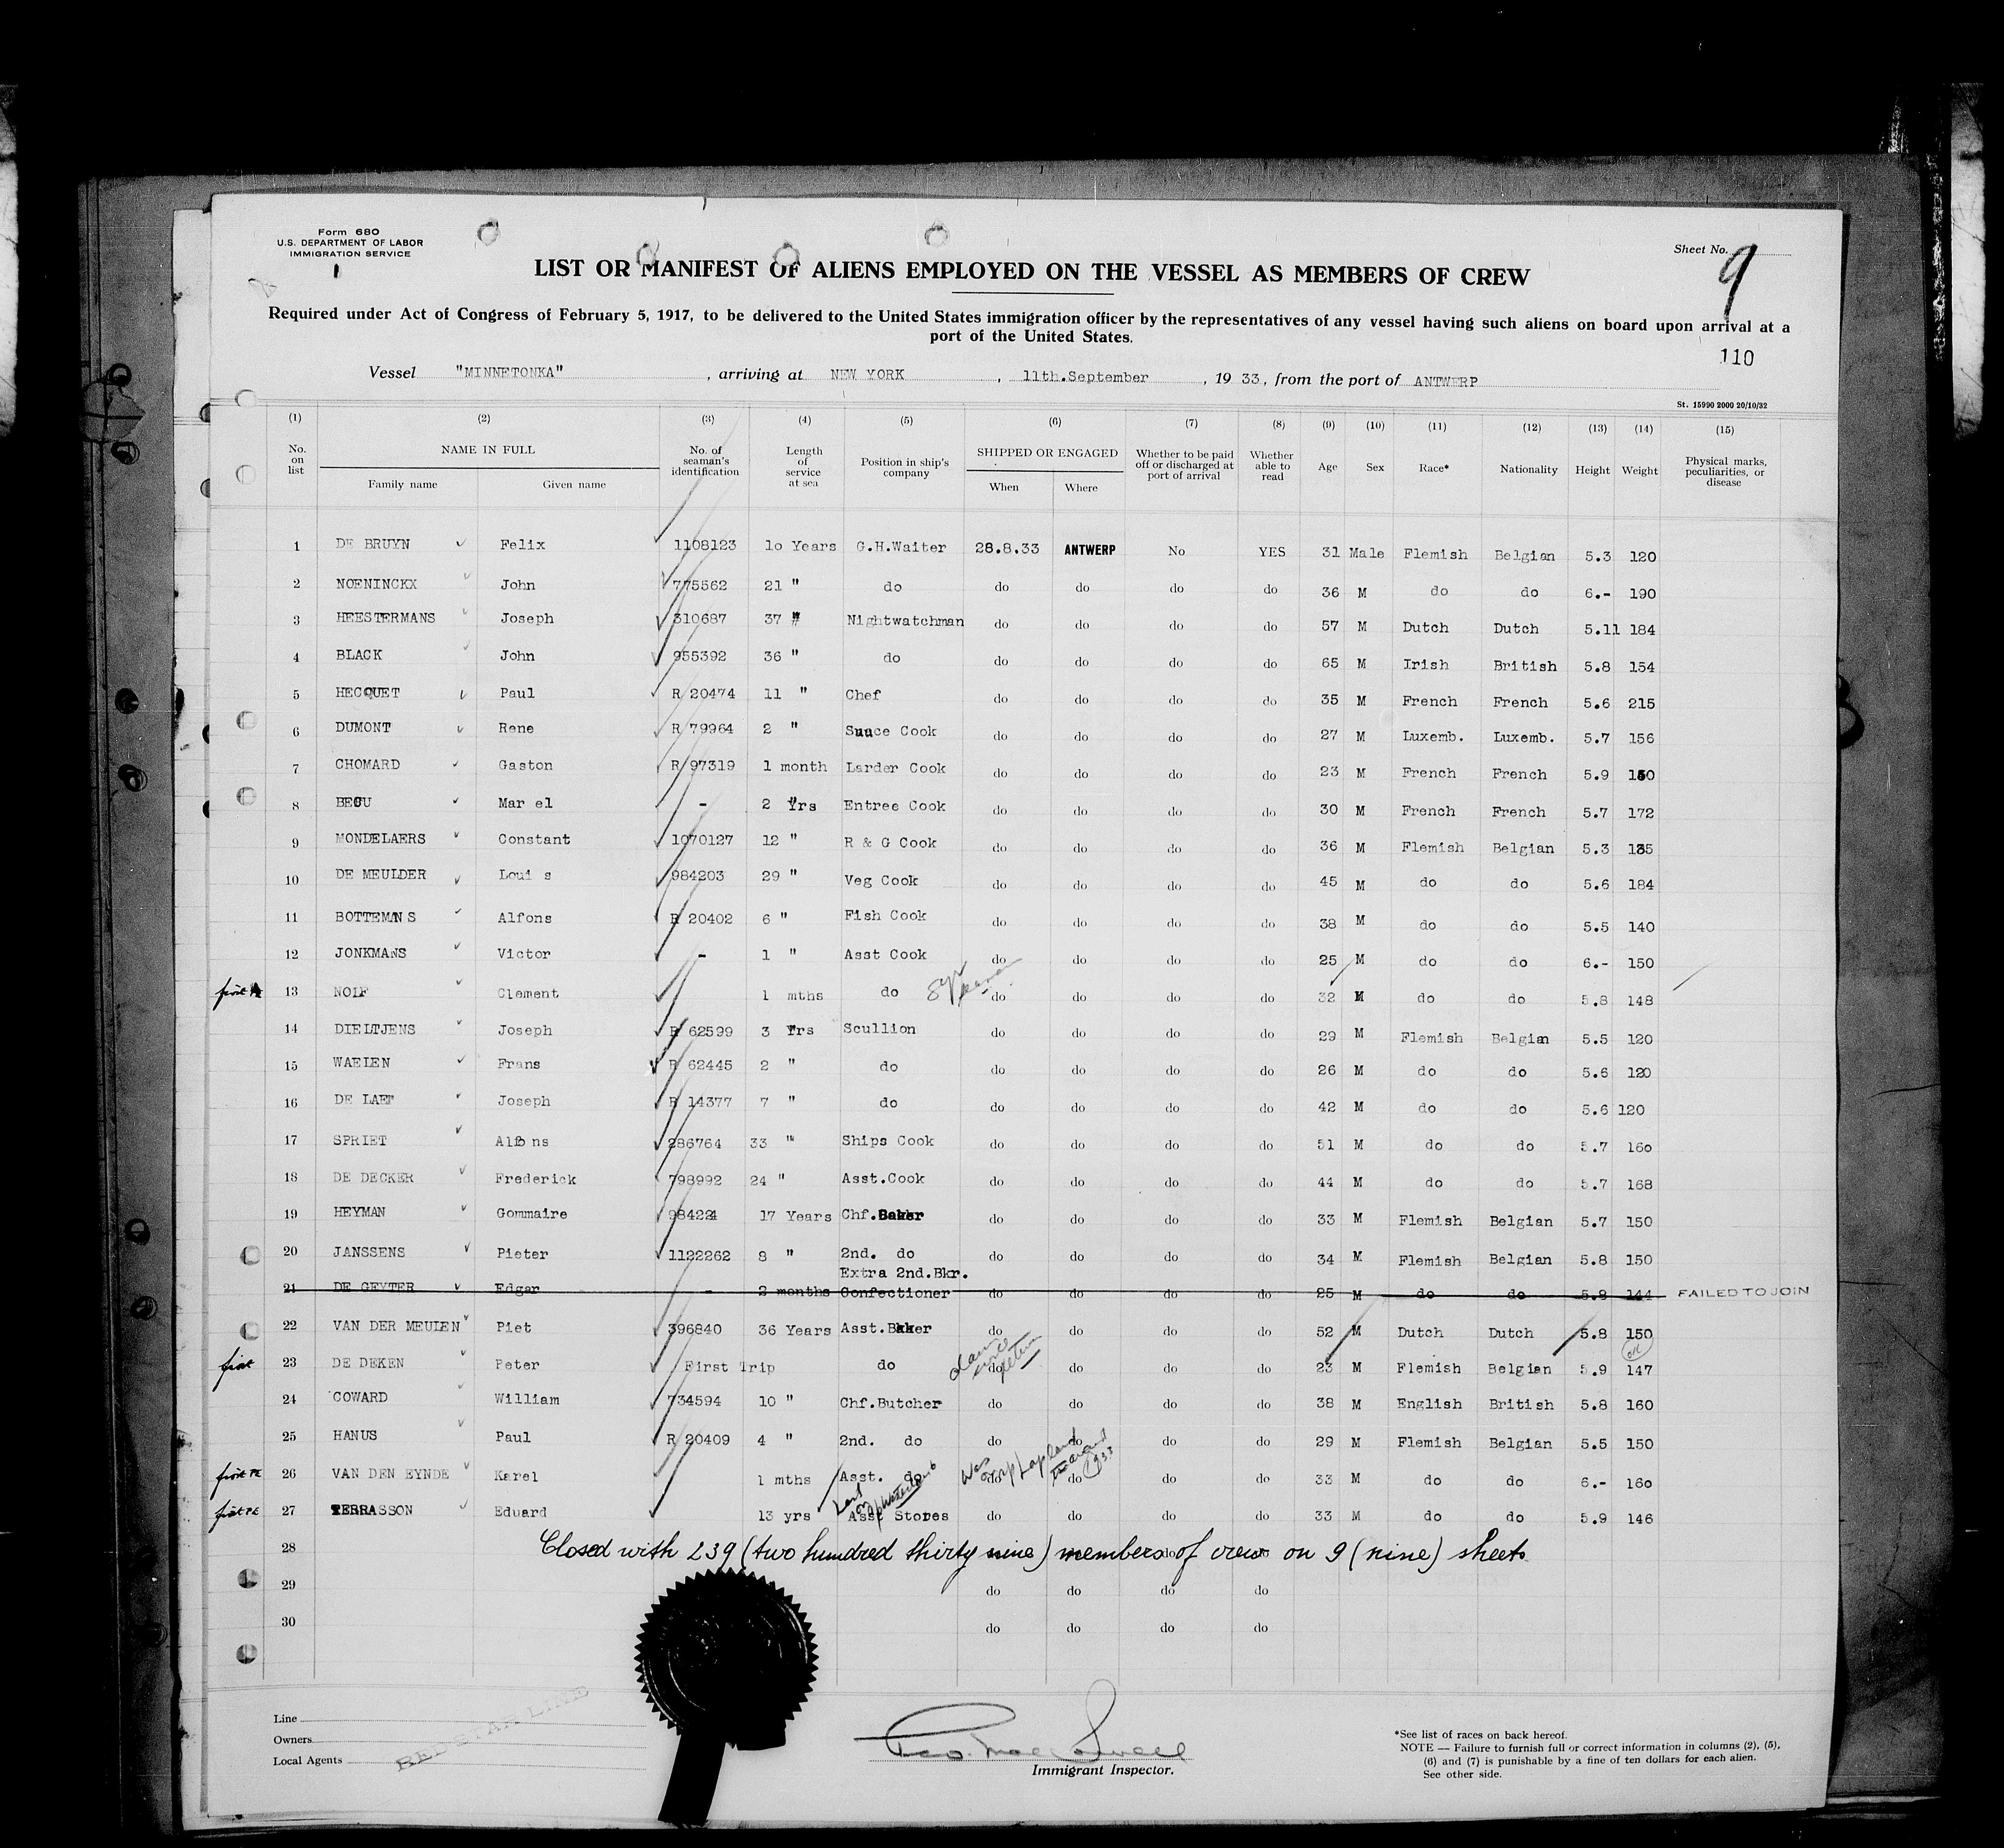 Form 680
U.S. DEPARTMENT OF LABOR
IMMIGRATION SERVICE
Sheet No. 9
LIST OR MANIFEST OF ALIENS EMPLOYED ON THE VESSEL AS MEMBERS OF CREW
Required under Act of Congress of February 5, 1917, to be delivered to the United States immigration officer by the representatives of any vessel having such aliens on board upon arrival at a
port of the United States.
110
Vessel "MINNETONKA", arriving at NEW YORK, 11th.September, 19 33, from the port of ANTWERP
St. 15990 2000 20/10/32
(1) (2) (3) (4) (5) (6) (7) (8) (9) (10) (11) (12) (13) (14) (15)
No. on list NAME IN FULL Family name Given name No. of seaman's identification Length of service at sea Position in ship's company SHIPPED OR ENGAGED When Where Whether to be paid off or discharged at port of arrival Whether able to read Age Sex Race* Nationality Height Weight Physical marks, peculiarities, or disease
1 DE BRUYN Felix 1108123 10 Years G.H.Waiter 28.8.33 ANTWERP No YES 31 Male Flemish Belgian 5.3 120
2 NOENINCKX John 775562 21 " do do do do do 36 M do do 6.- 190
3 HEESTERMANS Joseph 310687 37 " Nightwatchman do do do do 57 M Dutch Dutch 5.11 184
4 BLACK John 955392 36 " do do do do do 65 M Irish British 5.8 154
5 HECQUET Paul R 20474 11 " Chef do do do do 35 M French French 5.6 215
6 DUMONT Rene R 79964 2 " Sauce Cook do do do do 27 M Luxemb. Luxemb. 5.7 156
7 CHOMARD Gaston R 97319 1 month Larder Cook do do do do 23 M French French 5.9 150
8 BEGU Mar el - 2 Yrs Entree Cook do do do do 30 M French French 5.7 172
9 MONDELAERS Constant 1070127 12 " R & G Cook do do do do 36 M Flemish Belgian 5.3 135
10 DE MEULDER Loui s 984203 29 " Veg Cook do do do do 45 M do do 5.6 184
11 BOTTEMANS Alfons R 20402 6 " Fish Cook do do do do 38 M do do 5.5 140
12 JONKMANS Victor - 1 " Asst Cook do do do do 25 M do do 6.- 150
first 13 NOIF Clement 1 mths do do do do do 32 M do do 5.8 148
14 DIELTJENS Joseph R 62599 3 Yrs Scullion do do do do 29 M Flemish Belgian 5.5 120
15 WAELEN Frans R 62445 2 " do do do do do 26 M do do 5.6 120
16 DE LAET Joseph R 14377 7 " do do do do do 42 M do do 5.6 120
17 SPRIET Alfons 286764 33 " Ships Cook do do do do 51 M do do 5.7 160
18 DE DECKER Frederick 798992 24 " Asst.Cook do do do do 44 M do do 5.7 168
19 HEYMAN Gommaire 984224 17 Years Chf.Baker do do do do 33 M Flemish Belgian 5.7 150
20 JANSSENS Pieter 1122262 8 " 2nd. do do do do do 34 M Flemish Belgian 5.8 150
Extra 2nd.Bkr.
21 DE GEYTER Edgar - 2 months Confectioner do do do do 25 M do do 5.8 144 FAILED TO JOIN
22 VAN DER MEULEN Piet 396840 36 Years Asst.Baker do do do do 52 M Dutch Dutch 5.8 150
first 23 DE DEKEN Peter First Trip do do do do do 23 M Flemish Belgian 5.9 147
24 COWARD William 734594 10 " Chf.Butcher do do do do 38 M English British 5.8 160
25 HANUS Paul R 20409 4 " 2nd. do do do do do 29 M Flemish Belgian 5.5 150
first 26 VAN DEN EYNDE Karel 1 mths Asst. do do do do do 33 M do do 6.- 160
first 27 TERRASSON Eduard 13 yrs Asst Stores do do do do 33 M do do 5.9 146
28 Closed with 239 (two hundred thirty nine) members of crew on 9 (nine) sheets
29 do do do do
30 do do do do
Line
Owners
Local Agents
RED STAR LINE
Immigrant Inspector.
*See list of races on back hereof.
NOTE — Failure to furnish full or correct information in columns (2), (5),
(6) and (7) is punishable by a fine of ten dollars for each alien.
See other side.